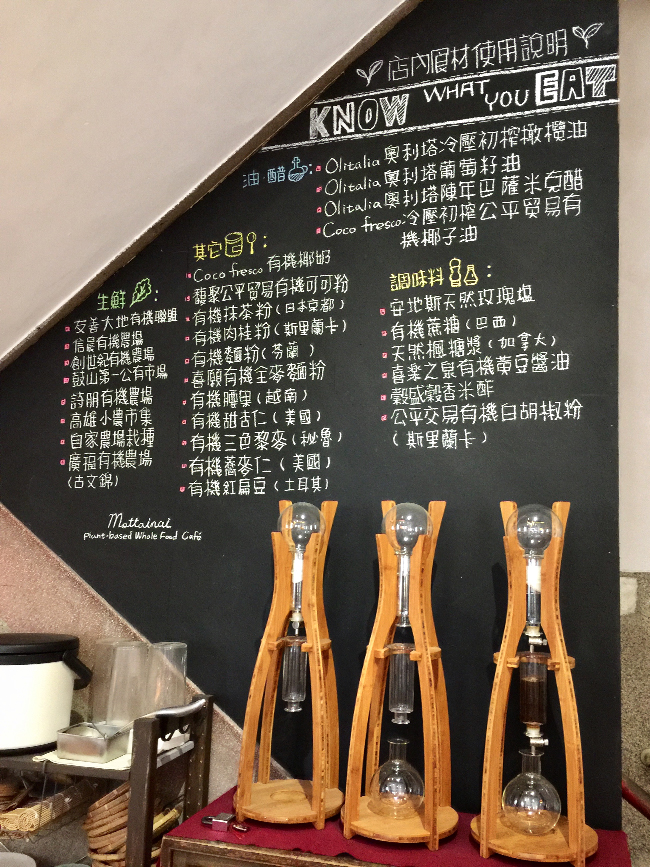 店內食材使用說明
KNOW WHAT YOU EAT
油·醋:
Olitalia 奧利塔冷壓初榨橄欖油
Olitalia 奧利塔葡萄籽油
Olitalia 奧利塔陳年巴薩米克醋
Coco fresco 冷壓初榨公平貿易有
機椰子油
其它:
Coco fresco 有機椰奶
馥聚公平貿易有機可可粉
有機抹茶粉(日本京都)
有機肉桂粉(斯里蘭卡)
有機麵粉(芬蘭)
喜願有機全麥麵粉
有機腰果(越南)
有機甜杏仁(美國)
有機三色藜麥(秘魯)
有機蕎麥仁(美國)
有機紅扁豆(土耳其)
調味料:
安地斯天然玫瑰塩
有機蔗糖(巴西)
天然楓糖漿(加拿大)
喜樂之泉有機蔭豆醬油
穀盛穀香米酢
公平交易有機白胡椒粉
(斯里蘭卡)
生鮮:
友善大地有機聯盟
信晨有機農場
創世紀有機農場
鼓山第一公有市場
詩朋有機農場
高雄小農市集
自家農場栽種
廣福有機農場
(古文錦)
Mottainai
Plant-based Whole Food Café